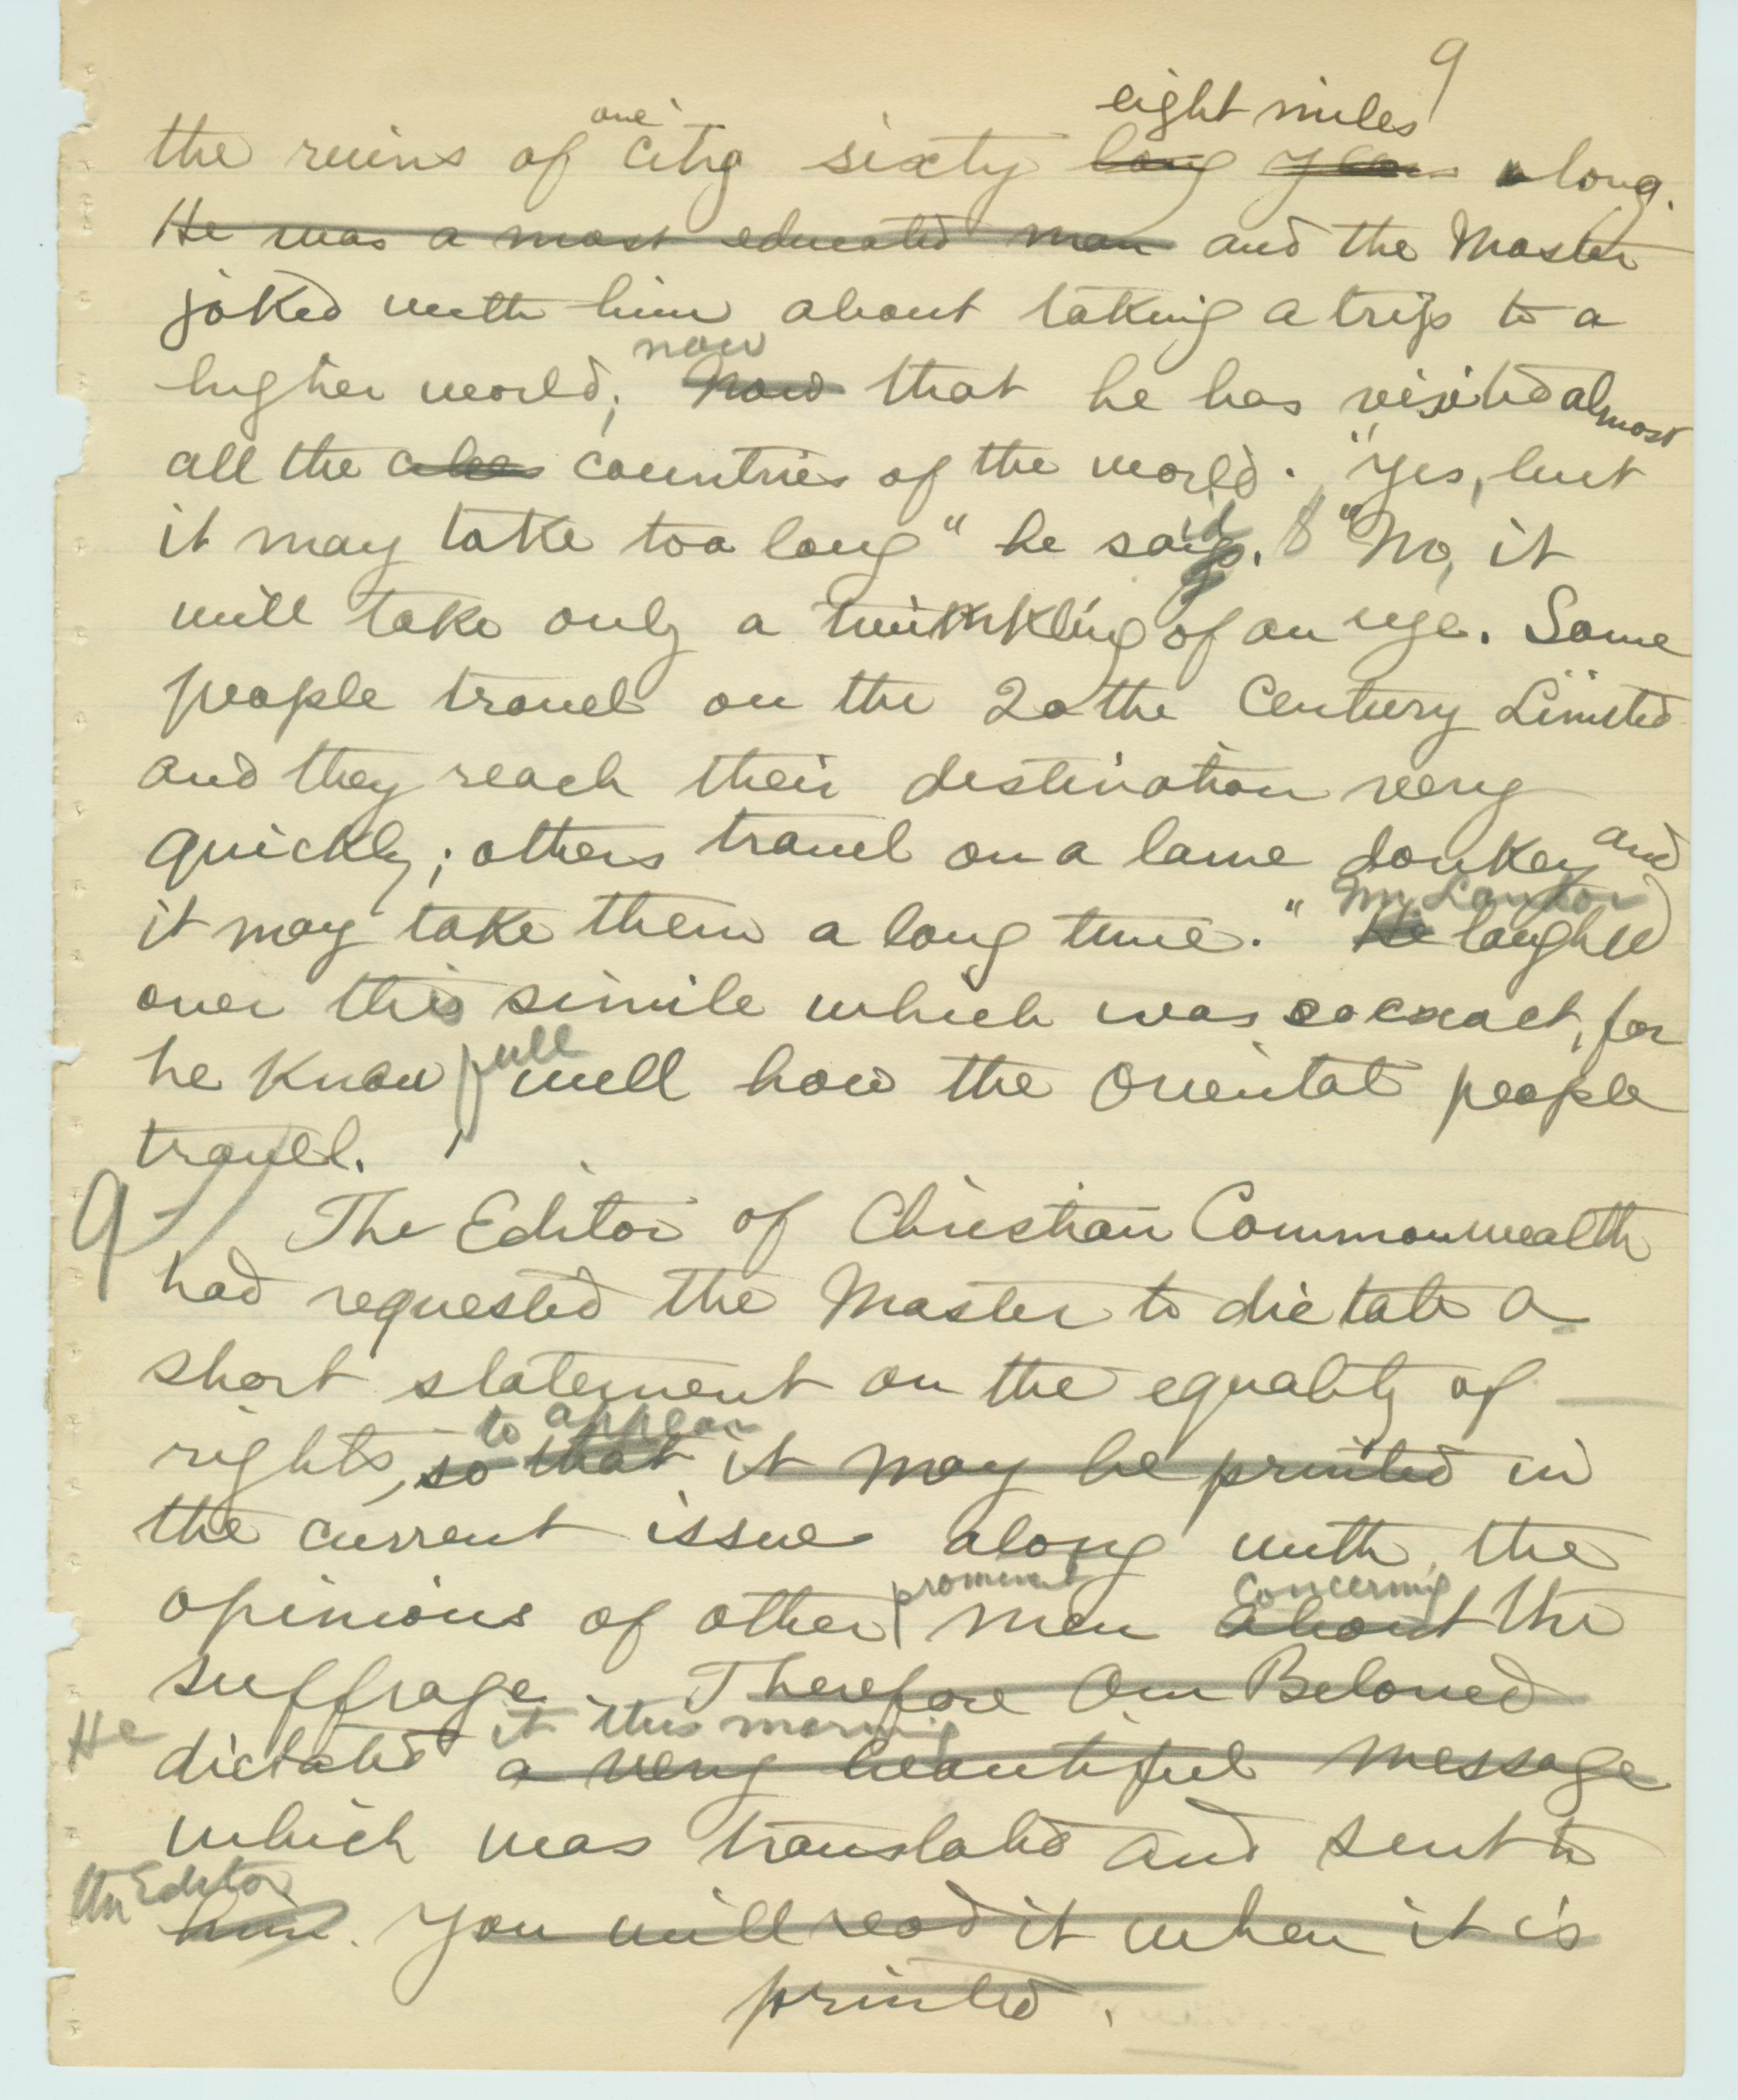 9
eight miles
the ruins of one city sixty long years along.
He was a most educated man and the Master
joked with him about taking a trip to a
now
higher world; Now that he has visited almost
all the countries of the world. "Yes, but
it may take too long" he said. "No, it
will take only a twinkling of an eye. Some
people travel on the 20the Century Limited
and they reach their destination very
quickly; others travel on a lame donkey and
Mr Landor
it may take them a long time." He laughed
over this simile which was so exact, for
he know full well how the Oriental people
travel.
9 The Editor of Christian Commonwealth
had requested the Master to dictate a
short statement on the equality of
to appear
rights, so that it may be printed in
the current issue along with the
prominent concerning
opinions of other men about the
suffrage. Therefore Our Beloved
He it this morning
dictated a very beautiful message
which was translated and sent to
the Editor
him. You will read it when it is
printed.